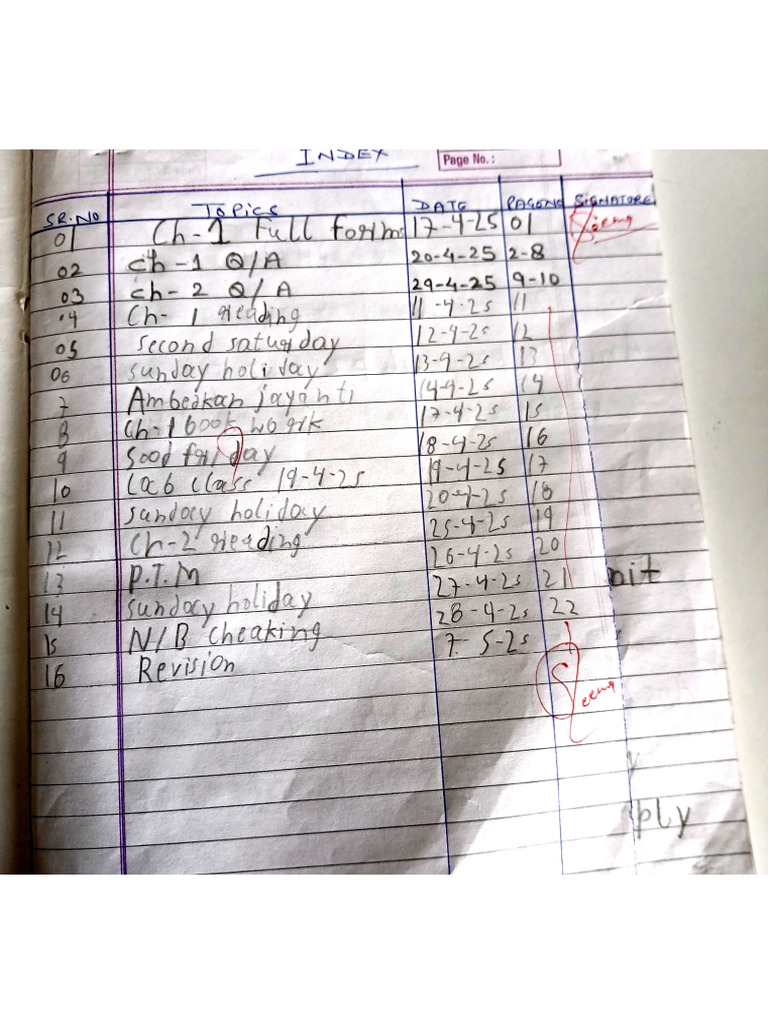 INDEX
Page No. :
SR.NO TOPICS DATE PAGONO SIGNATORE
01 Ch-1 Full Forms 17-4-25 01
02 ch-1 Q/A 20-4-25 2-8
03 ch-2 Q/A 29-4-25 9-10
04 Ch-1 reading 11-4-25 11
05 Second saturday 12-4-25 12
06 sunday holiday 13-4-25 13
7 Ambedkar jayanti 14-4-25 14
8 Ch-1 book work 17-4-25 15
9 Good friday 18-4-25 16
10 Lab class 19-4-25 19-4-25 17
11 sunday holiday 20-4-25 18
12 Ch-2 reading 25-4-25 19
13 P.T.M 26-4-25 20
14 sunday holiday 27-4-25 21
15 N/B cheaking 28-4-25 22
16 Revision 7-5-25
nit
ply